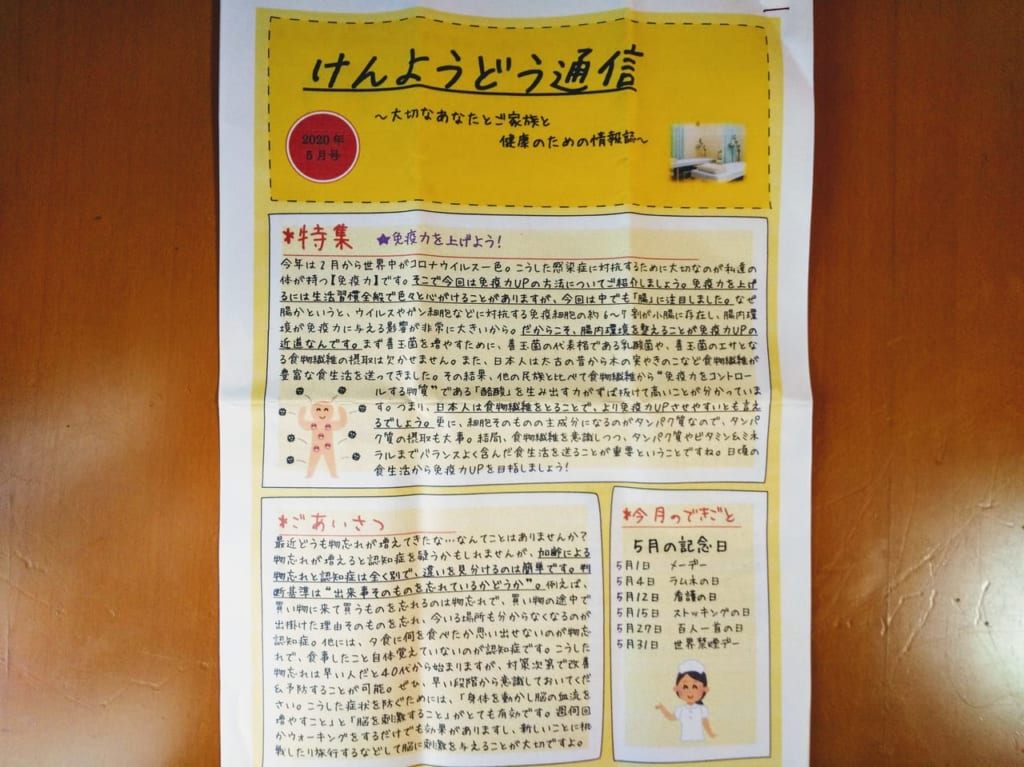 けんようどう通信
2020年
5月号
～大切なあなたとご家族と
健康のための情報誌～
*特集 ★免疫力を上げよう!
今年は2月から世界中がコロナウイルス一色。こうした感染症に対抗するために大切なのが私達の
体が持つ【免疫力】です。そこで今回は免疫力UPの方法についてご紹介しましょう。免疫力を上げ
るには生活習慣全般で色々と心がけることがありますが、今回は中でも「腸」に注目しました。なぜ
腸かというと、ウイルスやガン細胞などに対抗する免疫細胞の約6~7割が小腸に存在し、腸内環
境が免疫力に与える影響が非常に大きいから。だからこそ、腸内環境を整えることが免疫力UPの
近道なんです。まず善玉菌を増やすために、善玉菌の代表格である乳酸菌や、善玉菌のエサとな
る食物繊維の摂取は欠かせません。また、日本人は太古の昔から木の実やきのこなど食物繊維が
豊富な食生活を送ってきました。その結果、他の民族と比べて食物繊維から"免疫力をコントロー
ルする物質"である「酪酸」を生み出す力がずば抜けて高いことが分かっていま
す。つまり、日本人は食物繊維をとることで、より免疫力UPさせやすいとも言え
るでしょう。更に、細胞そのものの主成分になるのがタンパク質なので、タンパ
ク質の摂取も大事。結局、食物繊維を意識しつつ、タンパク質やビタミン&ミネ
ラルまでバランスよく含んだ食生活を送ることが重要ということですね。日頃の
食生活から免疫力UPを目指しましょう!
*ごあいさつ
最近どうも物忘れが増えてきたな…なんてことはありませんか?
物忘れが増えると認知症を疑うかもしれませんが、加齢による
物忘れと認知症は全く別で、違いを見分けるのは簡単です。判
断基準は"出来事そのものを忘れているかどうか"。例えば、
買い物に来て買うものを忘れるのは物忘れで、買い物の途中で
出掛けた理由そのものを忘れ、今いる場所も分からなくなるのが
認知症。他には、夕食に何を食べたか思い出せないのが物忘
れで、食事したこと自体覚えていないのが認知症です。こうした
物忘れは早い人だと40代から始まりますが、対策次第で改善
&予防することが可能。ぜひ、早い段階から意識しておいてくだ
さい。こうした症状を防ぐためには、「身体を動かし脳の血流を
増やすこと」と「脳を刺激すること」がとても有効です。週何回
かウォーキングをするだけでも効果がありますし、新しいことに挑
戦したり旅行するなどして脳に刺激を与えることが大切ですよ。
*今月のできごと
5月の記念日
5月1日 メーデー
5月4日 ラムネの日
5月12日 看護の日
5月15日 ストッキングの日
5月27日 百人一首の日
5月31日 世界禁煙デー